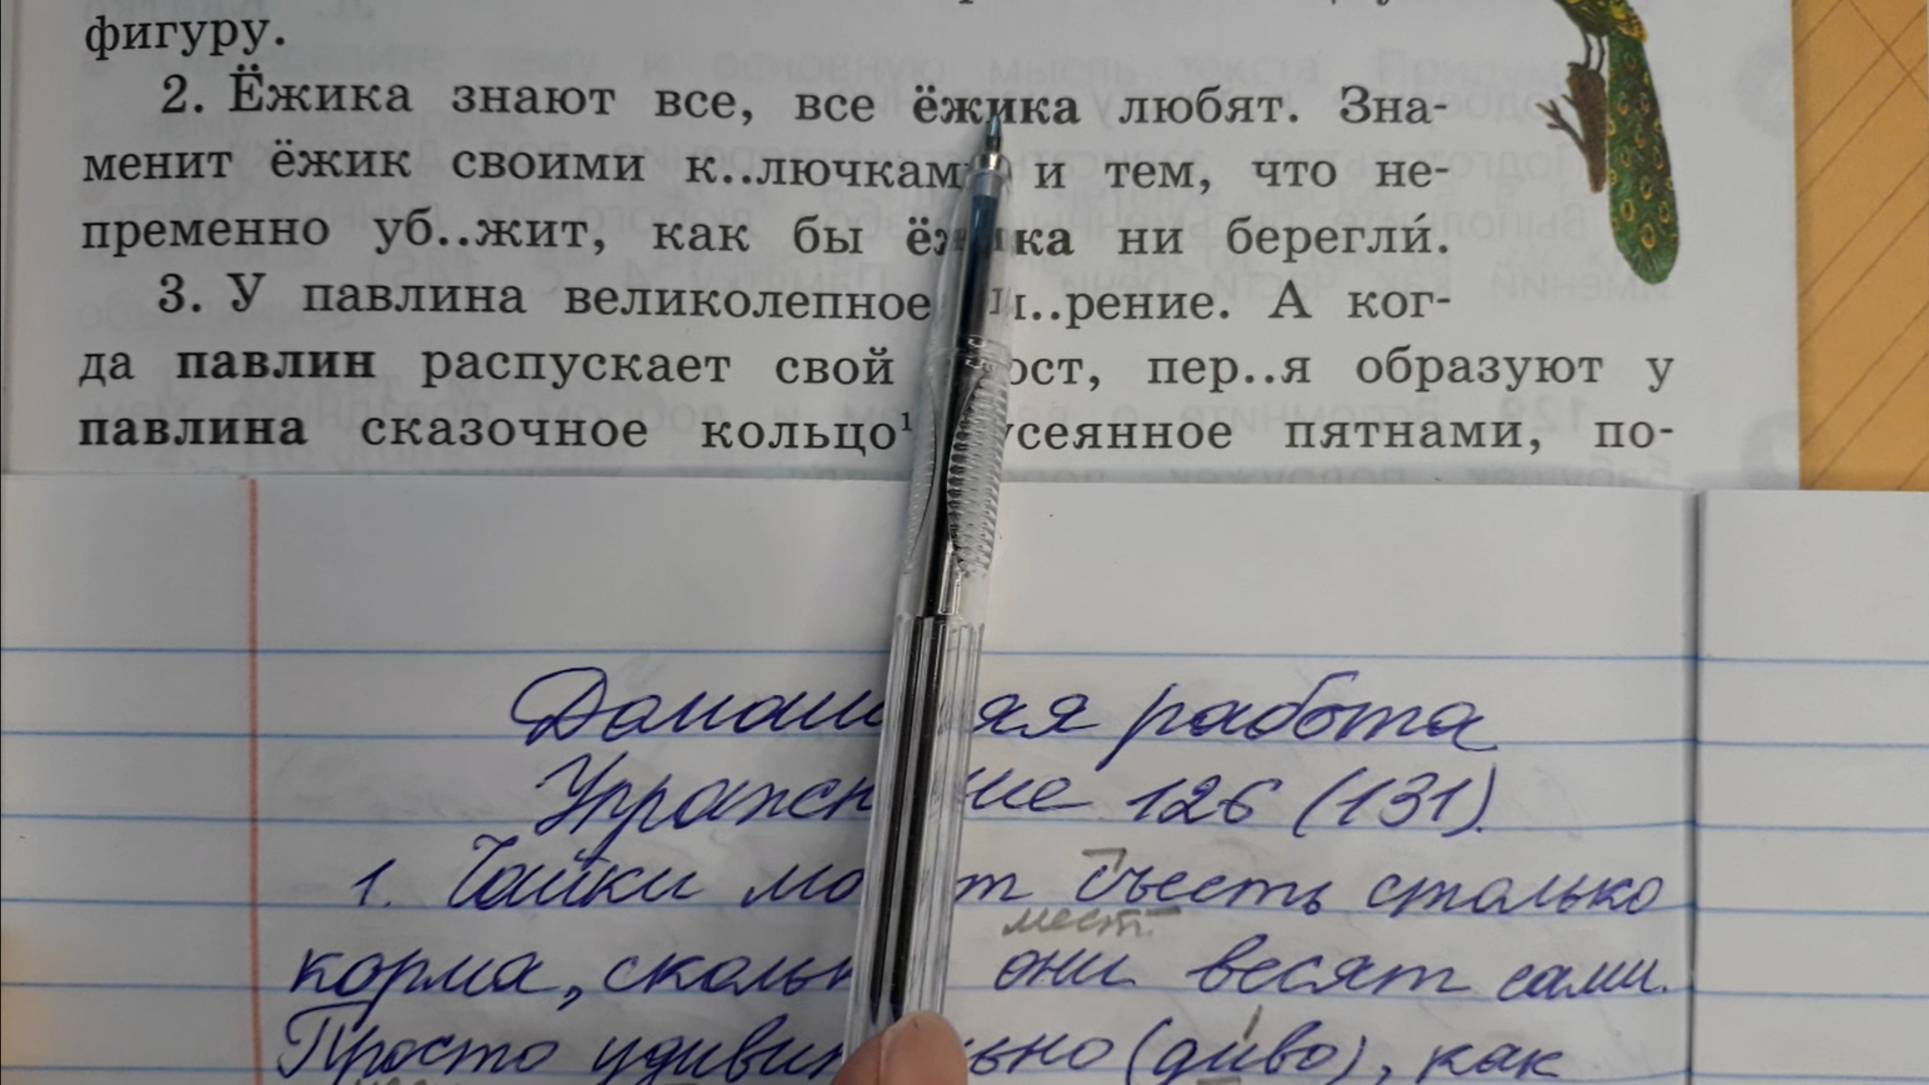 фигуру.
2. Ёжика знают все, все ёжика любят. Зна-
менит ёжик своими к..лючками и тем, что не-
пременно уб..жит, как бы ёжика ни берегли́.
3. У павлина великолепное ..рение. А ког-
да павлин распускает свой хвост, пер..я образуют у
павлина сказочное кольцо¹ усеянное пятнами, по-
Домашняя работа
Упражнение 126 (131).
1. Чайки могут съесть столько
мест.
корма, сколько они весят сами.
Просто удивительно (диво), как